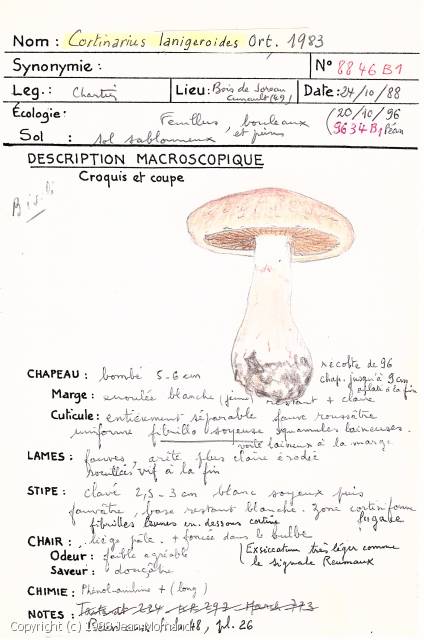 Nom : Cortinarius lanigeroides Ort. 1983
Synonymie :
N° 8846 B1
Leg. : Chartier
Lieu : Bois de Joreau
Cunault (49)
Date : 24/10/88
Écologie : Feuillus, bouleaux
et pins
(20/10/96
9634 B1 Péan
Sol : sol sablonneux
DESCRIPTION MACROSCOPIQUE
Croquis et coupe
Bis
récolte de 96
chap. jusqu'à 9 cm
aplati à la fin
CHAPEAU : bombé 5-6 cm
Marge : enroulée blanche (jeune) restant + claire
Cuticule : entièrement séparable fauve roussâtre
uniforme fibrillo soyeuse squamules laineuses.
voile laineux à la marge
LAMES : fauves, arête plus claire érodée
rouillées vif à la fin
STIPE : clavé 2,5-3 cm blanc soyeux puis
fauvâtre, base restant blanche. Zone cortiniforme
fibrilles jaunes en dessous cortine fugace
CHAIR : liège pâle. + foncée dans le bulbe
Odeur : faible agréable
Saveur : douçâtre
(Exsiccation très léger comme
le signale Reumaux
CHIMIE : Phénol-aniline + (long)
NOTES :
Reumaux fm 48, pl. 26
Copyright (c) 1988